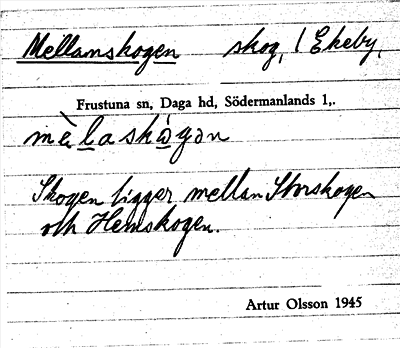 Mellanskogen skog, l Ekeby,
Frustuna sn, Daga hd, Södermanlands l,.
mèlaskògən
Skogen ligger mellan Storskogen
och Hemskogen.
Artur Olsson 1945